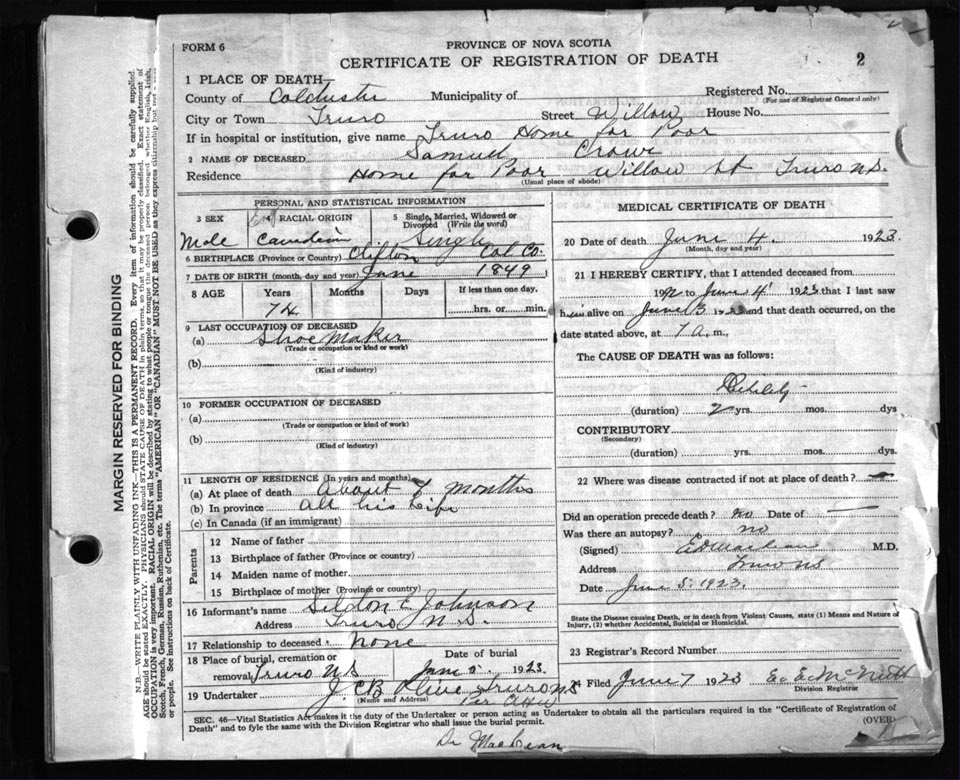 FORM 6
PROVINCE OF NOVA SCOTIA
CERTIFICATE OF REGISTRATION OF DEATH
2
1 PLACE OF DEATH—
County of Colchester Municipality of Registered No.
(For use of Registrar General only)
City or Town Truro Street Willow House No.
If in hospital or institution, give name Truro Home for Poor
2 NAME OF DECEASED Samuel Crowe
Residence Home for Poor Willow St Truro N.S.
(Usual place of abode)
PERSONAL AND STATISTICAL INFORMATION
3 SEX
4 RACIAL ORIGIN
5 Single, Married, Widowed or Divorced (Write the word)
Male Canadian Single
6 BIRTHPLACE (Province or Country) Clifton Col. Co.
7 DATE OF BIRTH (month, day and year) June 1849
8 AGE Years Months Days If less than one day,
74 hrs. or min.
9 LAST OCCUPATION OF DECEASED
(a) Shoe Maker
(Trade or occupation or kind or work)
(b)
(Kind of industry)
10 FORMER OCCUPATION OF DECEASED
(a)
(Trade or occupation or kind of work)
(b)
(Kind of Industry)
11 LENGTH OF RESIDENCE (In years and months)
(a) At place of death About 8 months
(b) In province All his Life
(c) In Canada (if an immigrant)
Parents
12 Name of father
13 Birthplace of father (Province or country)
14 Maiden name of mother
15 Birthplace of mother (Province or country)
16 Informant's name Johnson
Address Truro N.S.
17 Relationship to deceased None
18 Place of burial, cremation or removal Truro N.S.
Date of burial
June 5 1923
19 Undertaker J C B Olive Truro NS
(Name and Address)
Per
MEDICAL CERTIFICATE OF DEATH
20 Date of death June 4. 1923.
(Month, day and year)
21 I HEREBY CERTIFY, that I attended deceased from
19 to June 4 1923 that I last saw
him alive on June 3 1923 and that death occurred, on the
date stated above, at 7 a.m.,
The CAUSE OF DEATH was as follows:
Debility
(duration) 2 yrs. mos. dys
CONTRIBUTORY
(Secondary)
(duration) yrs. mos. dys.
22 Where was disease contracted if not at place of death? —
Did an operation precede death? no Date of —
Was there an autopsy? no
(Signed) M.D.
Address Truro NS
Date June 5. 1923.
State the Disease causing Death, or in death from Violent Causes, state (1) Means and Nature of Injury, (2) whether Accidental, Suicidal or Homicidal.
23 Registrar's Record Number
24 Filed June 7 1923 E. E. McNutt
Division Registrar
SEC. 46—Vital Statistics Act makes it the duty of the Undertaker or person acting as Undertaker to obtain all the particulars required in the "Certificate of Registration of
Death" and to fyle the same with the Division Registrar who shall issue the burial permit.
(OVER)
Dr MacLean
MARGIN RESERVED FOR BINDING
N.B.—WRITE PLAINLY WITH UNFADING INK—THIS IS A PERMANENT RECORD. Every item of information should be carefully supplied.
AGE should be stated EXACTLY. PHYSICIANS should STATE CAUSE OF DEATH in plain terms, so that it may be properly classified. Exact statement of
OCCUPATION is very important. RACIAL ORIGIN will be described by stating to what people or tongue the deceased person belonged whether English, Irish,
Scotch, French, German, Russian, Ruthenian, etc. The terms "AMERICAN" OR "CANADIAN" MUST NOT BE USED as they express citizenship but not
or people. See instructions on back of Certificate.